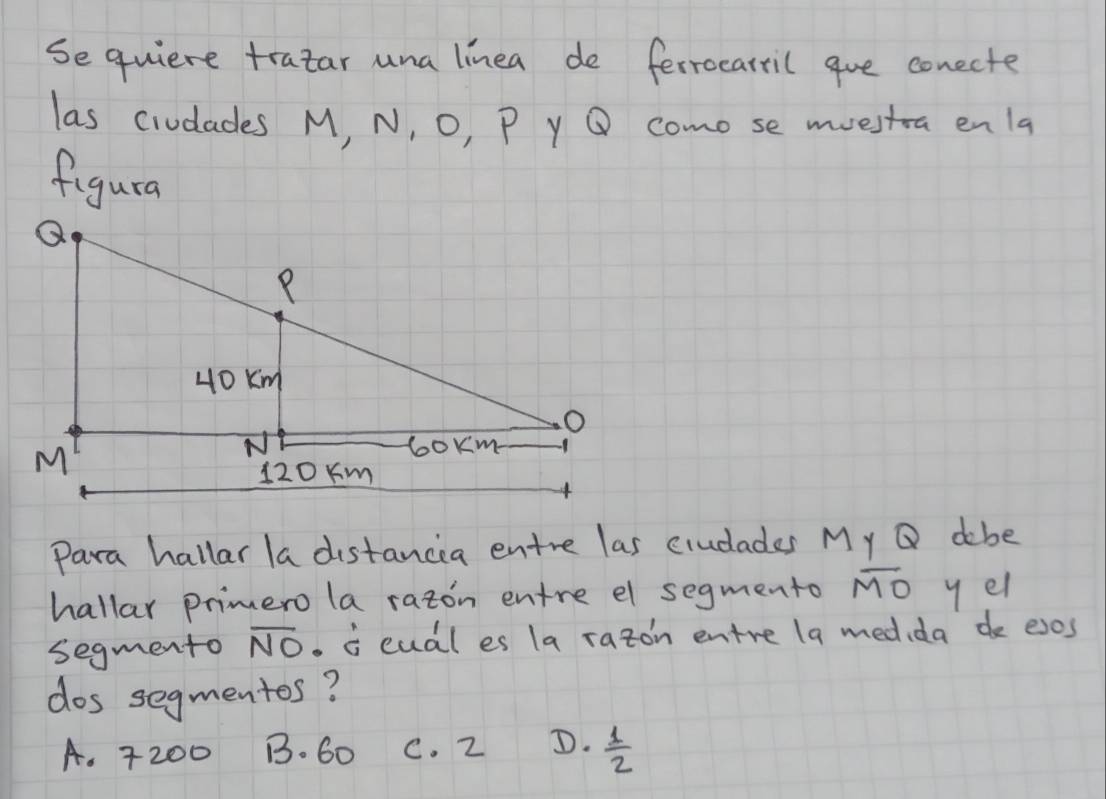 Se quiere trazar una línea de ferrocarril que conecte
las ciudades M, N, O, P y Q como se muestra en la
figura
Q
P
40 Km
O
N
60 Km
M
120 Km
Para hallar la distancia entre las ciudades M y Q debe
hallar primero la razón entre el segmento M̅O̅ y el
segmento N̅O̅. ¿ cuál es la razón entre la medida de esos
dos segmentos?
A. 7200 B. 60 C. 2 D. 1/2